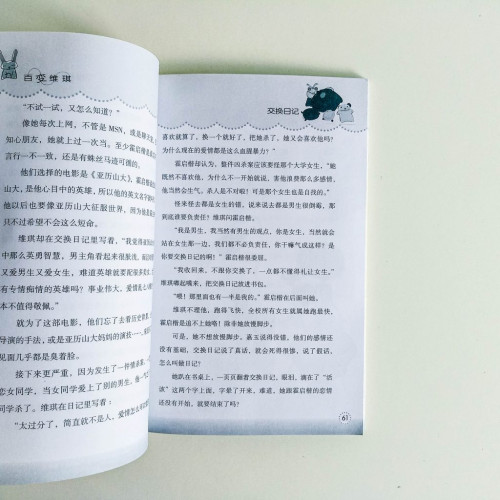 百变维琪
“不试一试，又怎么知道？”
像她每次上网，不管是 MSN，或是聊天
知心朋友，她就上过一次当。至少霍启楷
言行不一致，还是有蛛丝马迹可循的。
他们选择的电影是《亚历山大》，霍启楷
山大，是他心目中的英雄，所以他的英文名字
他以后也要像亚历山大征服世界，因为他是
只不过希望不会这么短命。
维琪却在交换日记里写着：“我觉得
中那么英勇智慧，男主角看起来很脓
又爱男生又爱女生，难道英雄就要配很多
有专情痴情的英雄吗？事业伟大，爱情乱
本不值得敬佩。”
就为了这部电影，他们忘了去看历史
导演的手法，或是亚历山大妈妈的演技
见面几乎都是臭着脸。
接下来更严重，因为发生了一件情杀案，
恋女同学，当女同学爱上了别的男生，他一气
同学杀了。维琪在日记里写着：
“太过分了，简直就不是人，爱情怎么可以
交换日记
喜欢就算了，换一个就好了。把她杀了，她又会喜欢他吗？
为什么现在的爱情都是这么血腥暴力？”
霍启楷却认为，整件凶杀案应该要怪那个大学女生，“她
既然不喜欢他，为什么不一开始就说，害他浪费那么多感情，
他当然会生气。杀人是不对啦！可是那个女生也是自找的。”
怪来怪去都是女生的错，说来说去都是男生很倒霉，那
到底谁要负责任？维琪问霍启楷。
“我是男生，我当然有男生的观点，你是女生，当然就会
站在女生那一边，我们都不必负责任，你干嘛气成这样？是
你要交换日记的啊！”霍启楷很委屈。
“我收回来，不跟你交换了，一点都不懂得礼让女生。”
维琪嘴起嘴来，把交换日记放进书包。
“喂！那里面也有一半是我的。”霍启楷在后面叫她。
维琪不理他，跑得飞快，全校所有女生就属她跑最快，
霍启楷是追不上她啰！除非她放慢脚步。
可是，她不想放慢脚步，嘉玉说得没错，他们的感情还
没有基础，交换日记说了真话，就会死得很惨，说了假话，
怎么叫做日记？
她趴在书桌上，一页页翻着交换日记，眼泪，滴在了“活
该”这两个字上面，字晕了开来，难道，她跟霍启楷的恋情
还没有开始，就要结束了吗？
61